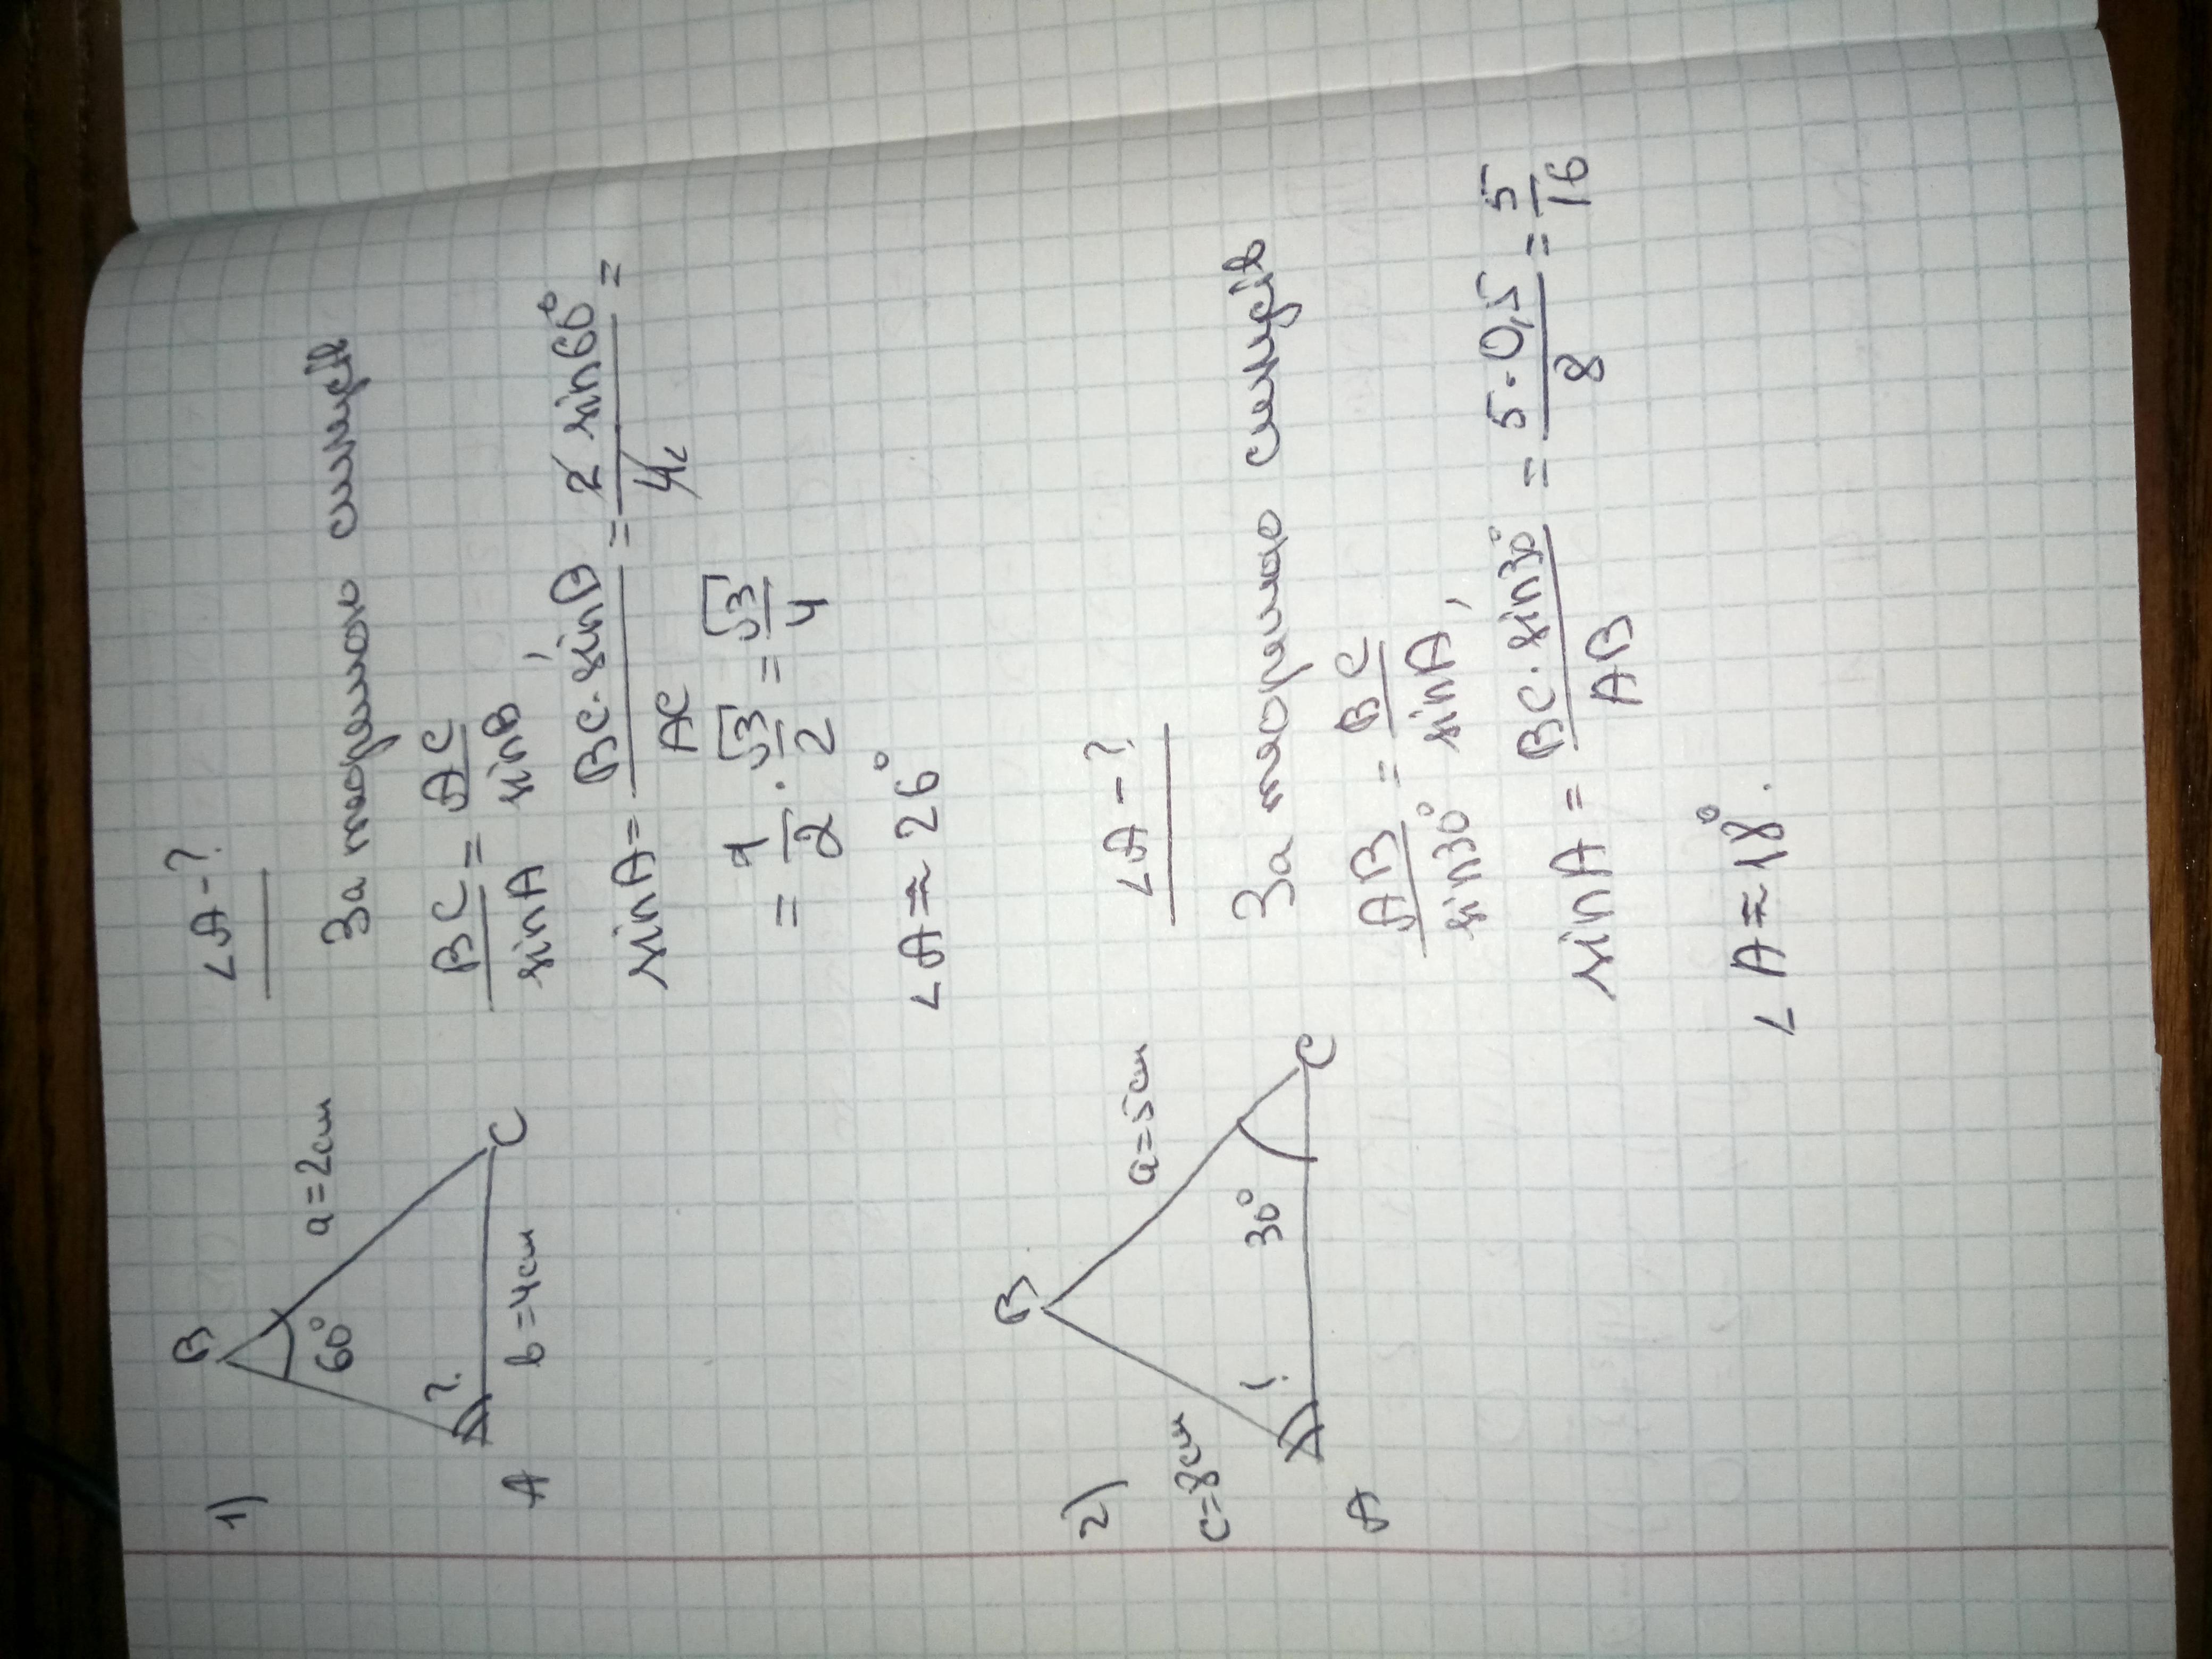 1)
B
60°
a=2см
?
A
b=4см
C
∠A-?
За теоремою синусів
BC/sinA = AC/sinB,
sinA = BC·sinB/AC = 2 sin60°/4 2 =
= 1/2 · √3/2 = √3/4
∠A≈26°
2)
B
c=8см
a=5см
?
30°
A
C
∠A-?
За теоремою синусів
AB/sin30° = BC/sinA,
sinA = BC·sin30°/AB = 5·0,5/8 = 5/16
∠A≈18°.